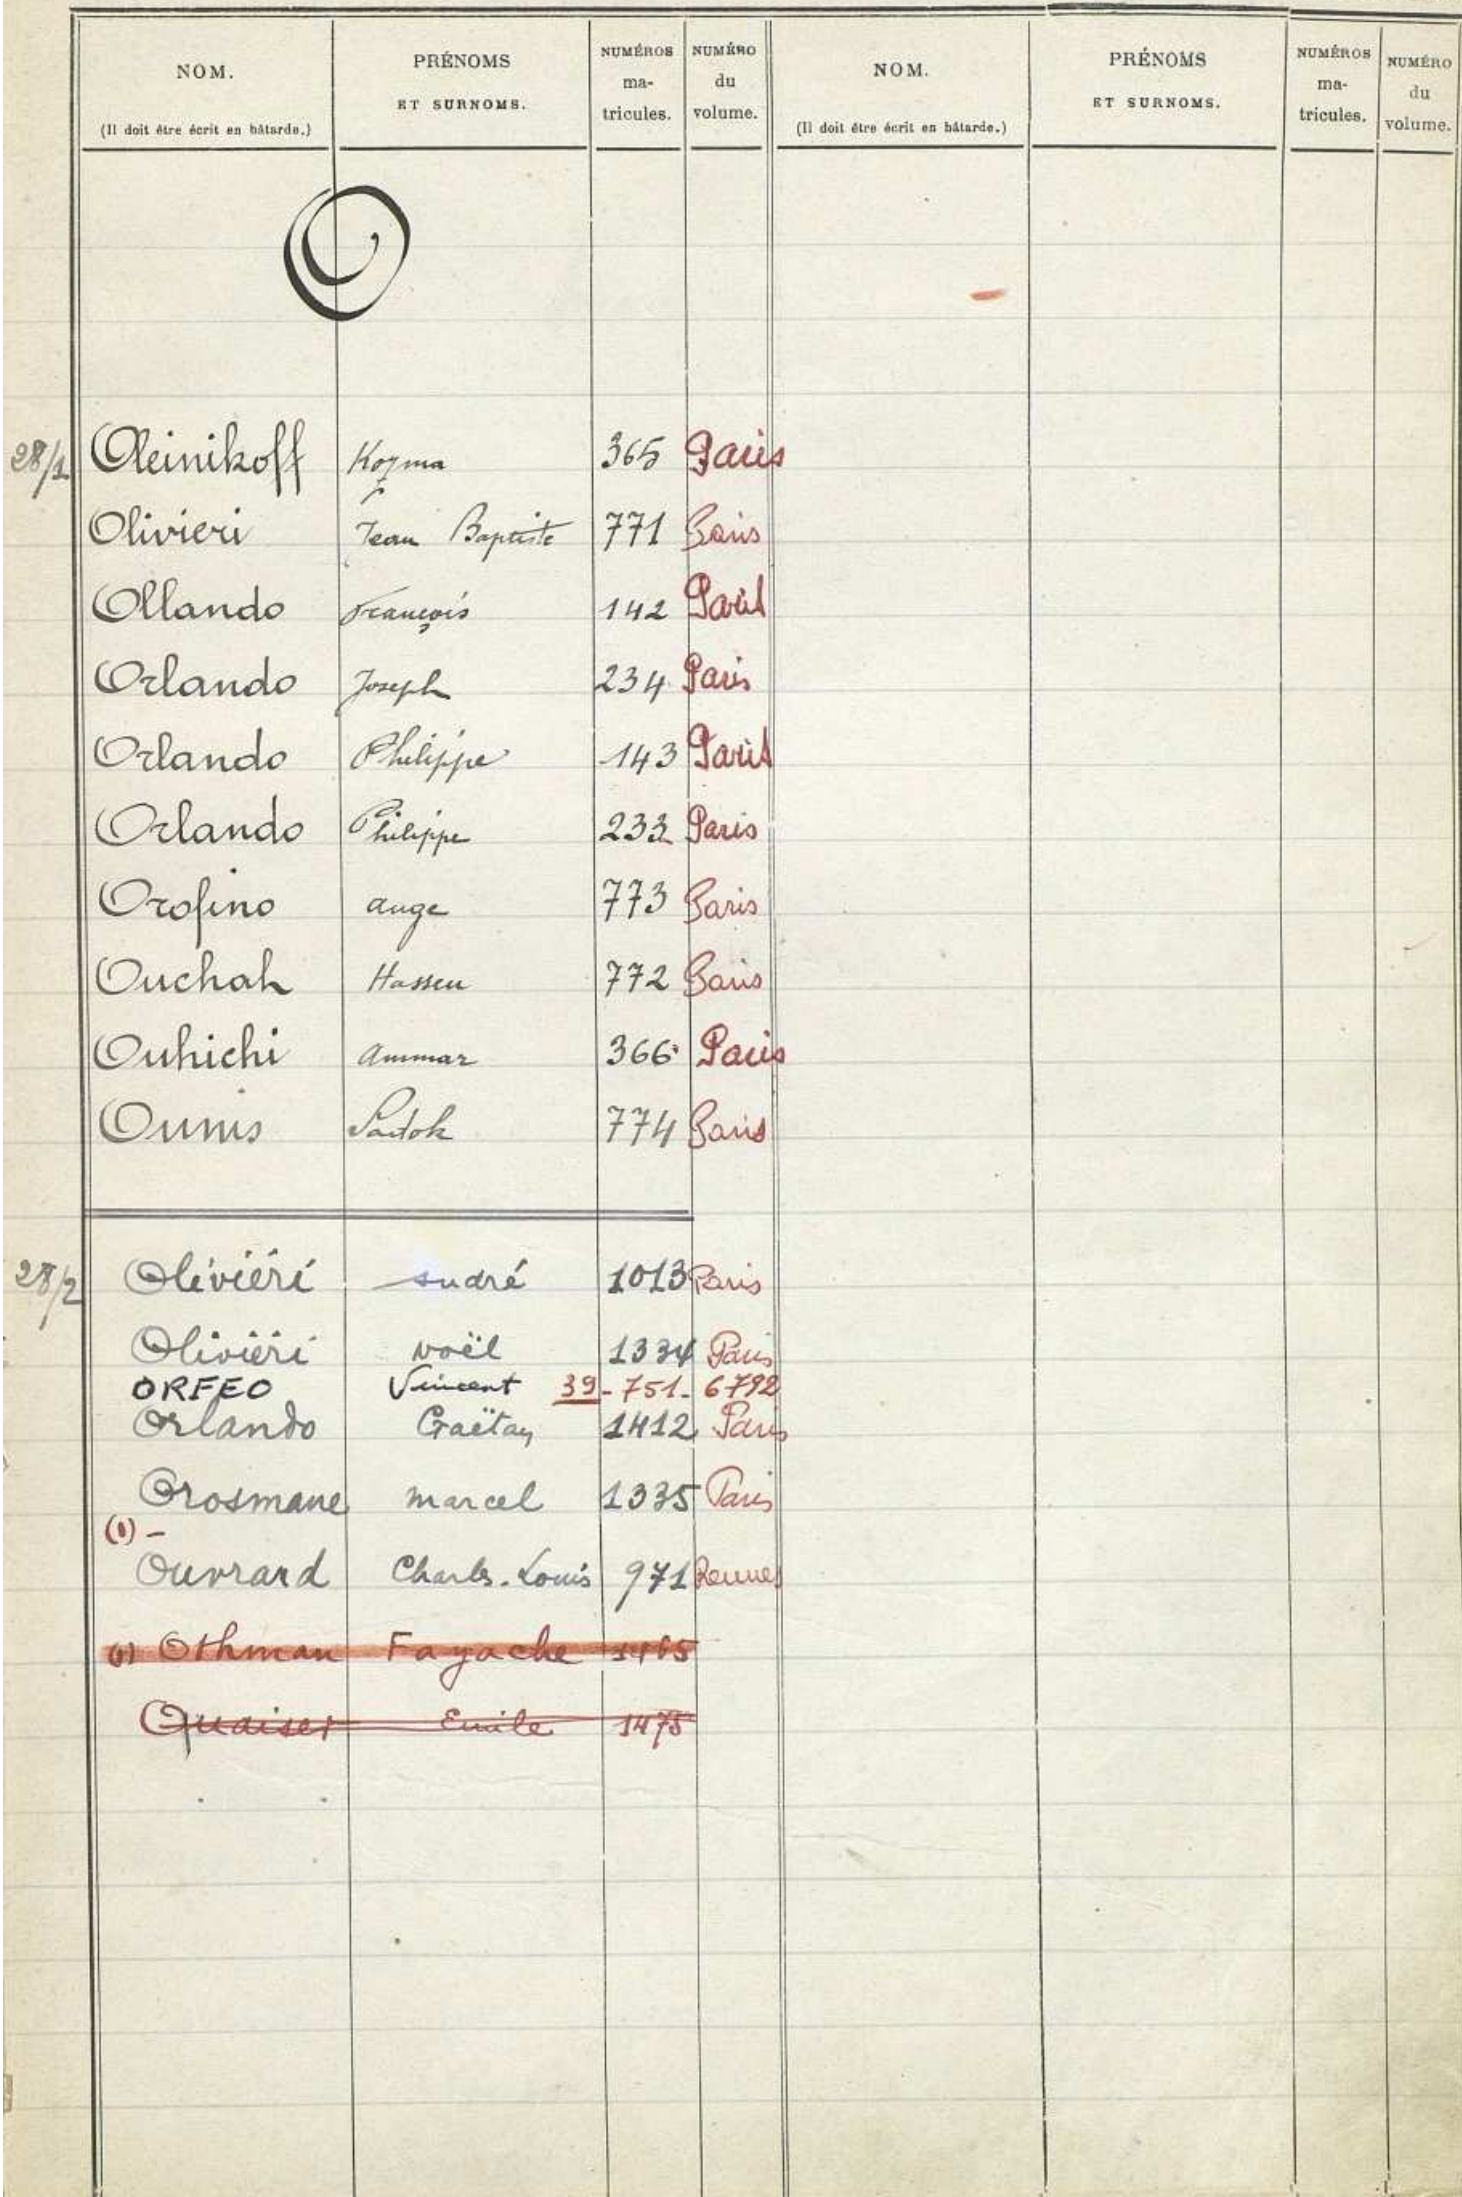 NOM. PRÉNOMS NUMÉROS NUMÉRO NOM. PRÉNOMS NUMÉROS NUMÉRO
ET SURNOMS. ma- du ET SURNOMS. ma- du
(Il doit être écrit en bâtarde.) tricules. volume. (Il doit être écrit en bâtarde.) tricules. volume.
O
28/1 Oleinikoff Kozma 365 Paris
Olivieri Jean Baptiste 771 Paris
Ollando François 142 Paris
Orlando Joseph 234 Paris
Orlando Philippe 143 Paris
Orlando Philippe 233 Paris
Orofino Ange 773 Paris
Ouchah Hassen 772 Paris
Ouhichi Ammar 366 Paris
Ounis Sadok 774 Paris
28/2 Oliviéri André 1013 Paris
Oliviéri Noël 1334 Paris
ORFEO Vincent 39-751-6792
Orlando Gaëtan 1412 Paris
Orosmane Marcel 1335 Paris
(1) -
Ouvrard Charles-Louis 971 Rennes
(1) Othman Fayache 1465
Quaiser Emile 1475